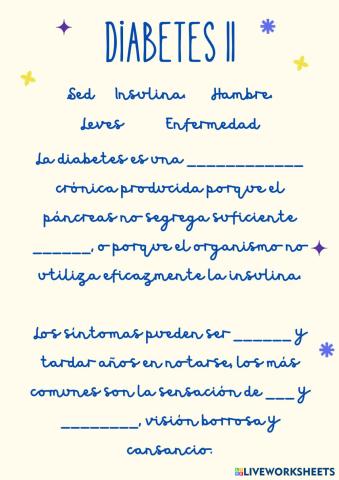 DIABETES II
Sed Insulina Hambre
Leves Enfermedad
La diabetes es una ____________
crónica producida porque el
páncreas no segrega suficiente
______, o porque el organismo no
utiliza eficazmente la insulina.
Los síntomas pueden ser ______ y
tardar años en notarse, los más
comunes son la sensación de ___ y
________, visión borrosa y
cansancio.
LIVEWORKSHEETS